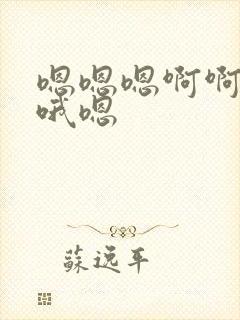 嗯嗯嗯啊啊
哦嗯
蘇逸平